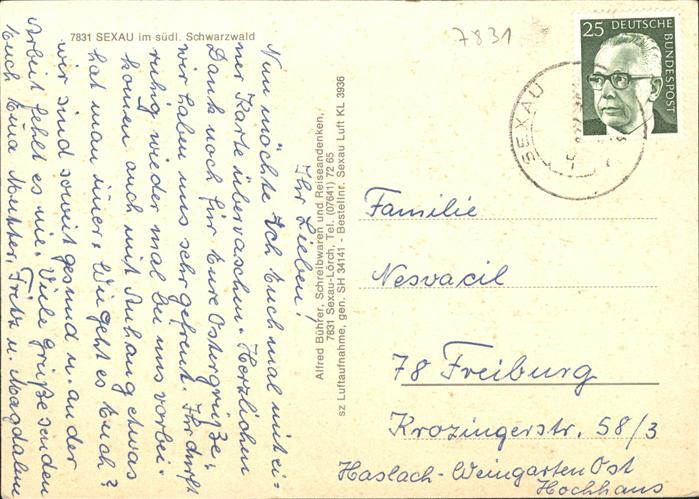 7831 SEXAU im südl. Schwarzwald
7831
25 DEUTSCHE
BUNDESPOST
SEXAU
Ihr Lieben!
Nun möchte Ich Euch mal mit ei-
ner Karte überaschen. Herzlichen
Dank noch für Eure Ostergrüße,
wir haben uns sehr gefreut. Ihr dürft
ruhig wieder mal bei uns vorbei-
komen auch mit Anhang etwas
hat man imer. Wie geht es Euch?
wir sind soweit gesund u. an der
Arbeit fehlt es nie. Viele Grüße senden
Euch Eure Mutter, Fritz u. Magdalene
Alfred Bührer, Schreibwaren und Reiseandenken,
7831 Sexau-Lörch, Tel. (07641) 72 65
sz Luftaufnahme, gen. SH 34141 - Bestellnr. Sexau Luft KL 3936
Familie
Nesvacil
78 Freiburg
Krozingerstr. 58/3
Haslach-Weingarten Ost
Hochhaus